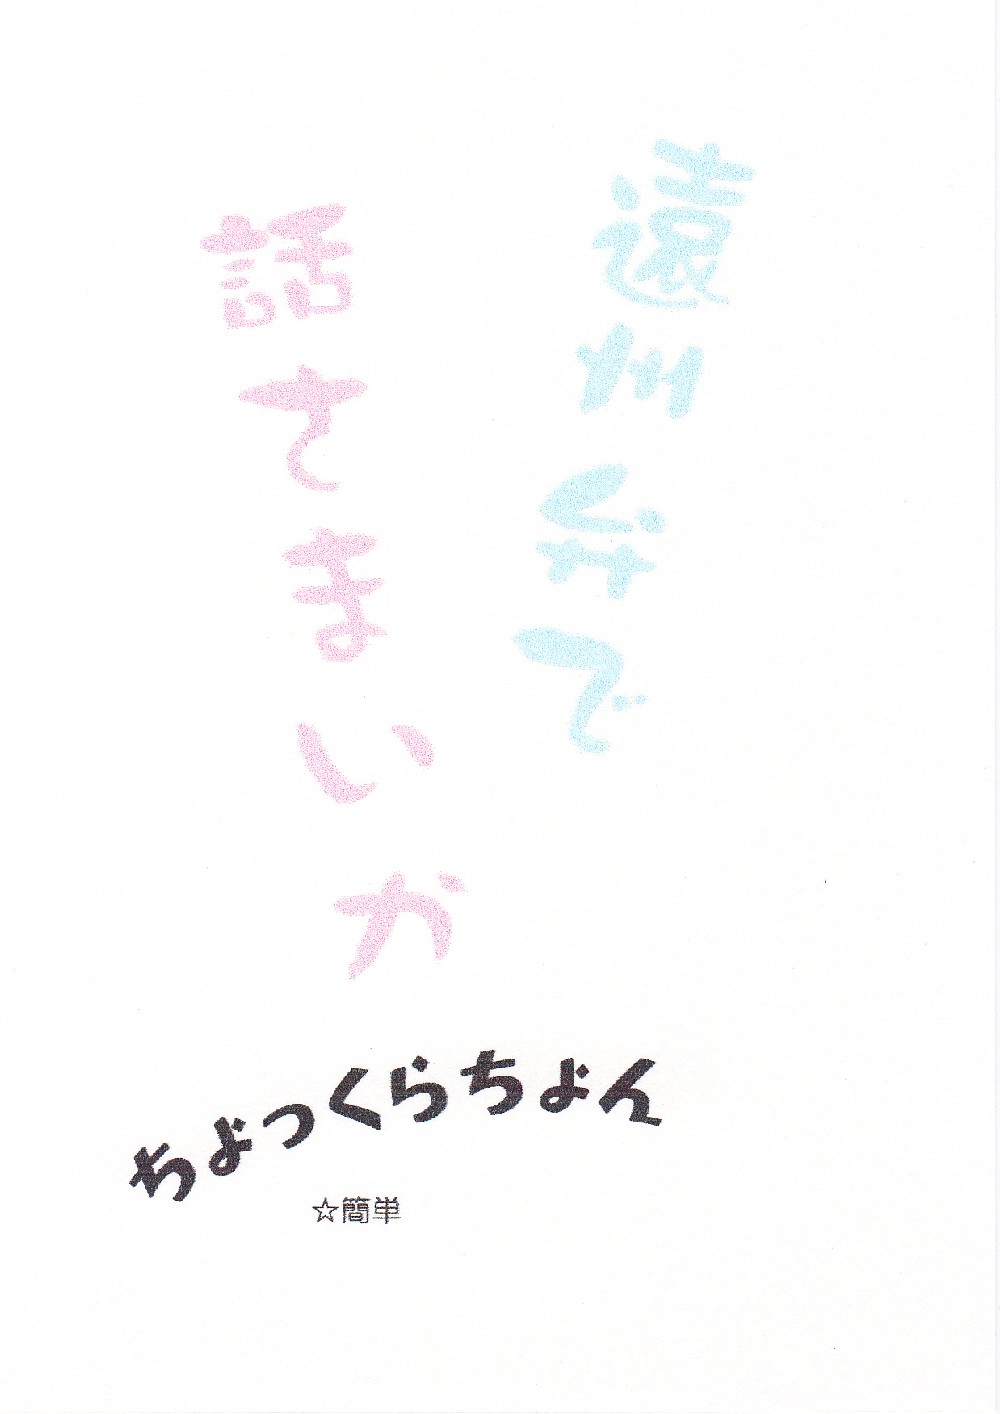 遠州弁で
話さまいか
ちょっくらちょん
☆簡単